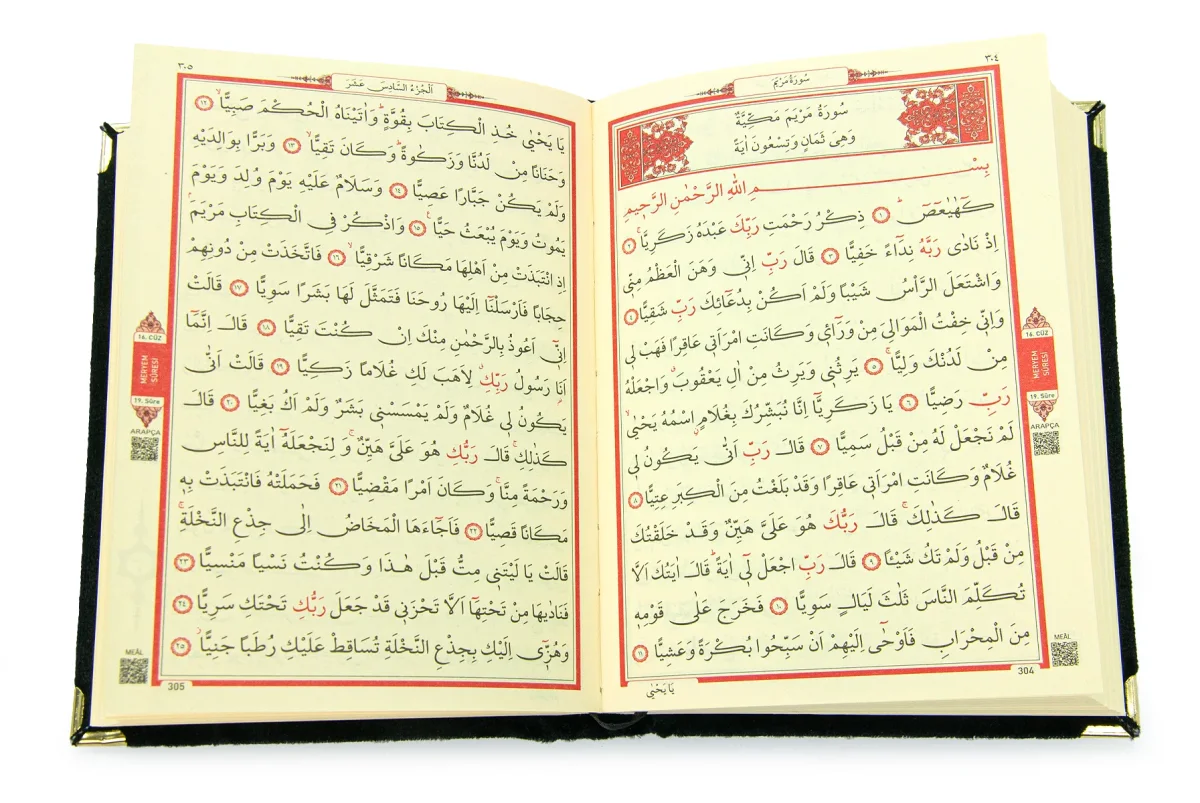 ٣٠٤
سُورَةُ مَرْيَمَ
سُورَةُ مَرْيَمَ مَكِّيَّةٌ
وَهِىَ ثَمَانٍ وَتِسْعُونَ اٰيَةً
بِسْــــــــمِ اللهِ الرَّحْمٰنِ الرَّحٖيمِ
كٓهٰيٰعٓصٓ ۚ ١ ذِكْرُ رَحْمَتِ رَبِّكَ عَبْدَهُ زَكَرِيَّا ۚ ٢
اِذْ نَادٰى رَبَّهُ نِدَٓاءً خَفِيًّا ٣ قَالَ رَبِّ اِنّٖى وَهَنَ الْعَظْمُ مِنّٖى
وَاشْتَعَلَ الرَّأْسُ شَيْبًا وَلَمْ اَكُنْ بِدُعَٓائِكَ رَبِّ شَقِيًّا ٤
وَاِنّٖى خِفْتُ الْمَوَالِىَ مِنْ وَرَٓاءٖى وَكَانَتِ امْرَاَتٖى عَاقِرًا فَهَبْ لٖى
مِنْ لَدُنْكَ وَلِيًّا ۙ ٥ يَرِثُنٖى وَيَرِثُ مِنْ اٰلِ يَعْقُوبَ وَاجْعَلْهُ
رَبِّ رَضِيًّا ٦ يَا زَكَرِيَّٓا اِنَّا نُبَشِّرُكَ بِغُلَامٍ اسْمُهُ يَحْيٰى ۙ
لَمْ نَجْعَلْ لَهُ مِنْ قَبْلُ سَمِيًّا ٧ قَالَ رَبِّ اَنّٰى يَكُونُ لٖى
غُلَامٌ وَكَانَتِ امْرَاَتٖى عَاقِرًا وَقَدْ بَلَغْتُ مِنَ الْكِبَرِ عِتِيًّا ٨
قَالَ كَذٰلِكَ ۚ قَالَ رَبُّكَ هُوَ عَلَىَّ هَيِّنٌ وَقَدْ خَلَقْتُكَ
مِنْ قَبْلُ وَلَمْ تَكُ شَيْـًٔا ٩ قَالَ رَبِّ اجْعَلْ لٖٓى اٰيَةً ۜ قَالَ اٰيَتُكَ اَلَّا
تُكَلِّمَ النَّاسَ ثَلٰثَ لَيَالٍ سَوِيًّا ١٠ فَخَرَجَ عَلٰى قَوْمِهٖ
مِنَ الْمِحْرَابِ فَاَوْحٰٓى اِلَيْهِمْ اَنْ سَبِّحُوا بُكْرَةً وَعَشِيًّا ١١
يَا يَحْيٰى
304
16. CÜZ
MERYEM
SÛRESİ
19. Sûre
ARAPÇA
MEÂL
٣٠٥
اَلْجُزْءُ السَّادِسَ عَشَرَ
يَا يَحْيٰى خُذِ الْكِتَابَ بِقُوَّةٍ ۜ وَاٰتَيْنَاهُ الْحُكْمَ صَبِيًّا ۙ ١٢
وَحَنَانًا مِنْ لَدُنَّا وَزَكٰوةً ۜ وَكَانَ تَقِيًّا ۙ ١٣ وَبَرًّا بِوَالِدَيْهِ
وَلَمْ يَكُنْ جَبَّارًا عَصِيًّا ١٤ وَسَلَامٌ عَلَيْهِ يَوْمَ وُلِدَ وَيَوْمَ
يَمُوتُ وَيَوْمَ يُبْعَثُ حَيًّا ۟ ١٥ وَاذْكُرْ فِى الْكِتَابِ مَرْيَمَ ۢ
اِذِ انْتَبَذَتْ مِنْ اَهْلِهَا مَكَانًا شَرْقِيًّا ۙ ١٦ فَاتَّخَذَتْ مِنْ دُونِهِمْ
حِجَابًا فَاَرْسَلْنَٓا اِلَيْهَا رُوحَنَا فَتَمَثَّلَ لَهَا بَشَرًا سَوِيًّا ١٧ قَالَتْ
اِنّٖٓى اَعُوذُ بِالرَّحْمٰنِ مِنْكَ اِنْ كُنْتَ تَقِيًّا ١٨ قَالَ اِنَّمَٓا
اَنَا رَسُولُ رَبِّكِ ۗ لِاَهَبَ لَكِ غُلَامًا زَكِيًّا ١٩ قَالَتْ اَنّٰى
يَكُونُ لٖى غُلَامٌ وَلَمْ يَمْسَسْنٖى بَشَرٌ وَلَمْ اَكُ بَغِيًّا ٢٠ قَالَ
كَذٰلِكِ ۚ قَالَ رَبُّكِ هُوَ عَلَىَّ هَيِّنٌ ۚ وَلِنَجْعَلَهُٓ اٰيَةً لِلنَّاسِ
وَرَحْمَةً مِنَّا ۚ وَكَانَ اَمْرًا مَقْضِيًّا ٢١ فَحَمَلَتْهُ فَانْتَبَذَتْ بِهٖ
مَكَانًا قَصِيًّا ٢٢ فَاَجَٓاءَهَا الْمَخَاضُ اِلٰى جِذْعِ النَّخْلَةِ ۚ
قَالَتْ يَا لَيْتَنٖى مِتُّ قَبْلَ هٰذَا وَكُنْتُ نَسْيًا مَنْسِيًّا ٢٣
فَنَادٰيهَا مِنْ تَحْتِهَٓا اَلَّا تَحْزَنٖى قَدْ جَعَلَ رَبُّكِ تَحْتَكِ سَرِيًّا ٢٤
وَهُزّٖٓى اِلَيْكِ بِجِذْعِ النَّخْلَةِ تُسَاقِطْ عَلَيْكِ رُطَبًا جَنِيًّا ۘ ٢٥
305
16. CÜZ
MERYEM
SÛRESİ
19. Sûre
ARAPÇA
MEÂL